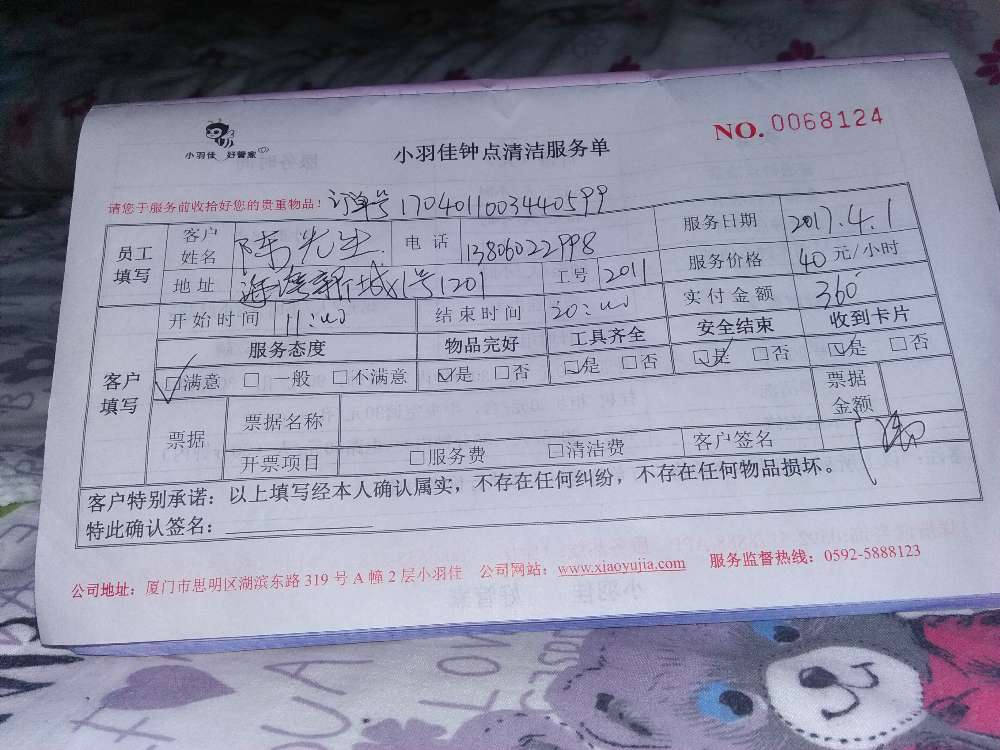 小羽佳 好管家
小羽佳钟点清洁服务单
NO. 0068124
请您于服务前收拾好您的贵重物品! 订单号 1704011003440599
员工填写 客户姓名 陈先生 电话 13806022998 服务日期 2017.4.1
地址 海湾新城1号1201 工号 2011 服务价格 40 元/小时
客户填写 开始时间 11:00 结束时间 20:00 实付金额 360
服务态度 物品完好 工具齐全 安全结束 收到卡片
☑满意 □一般 □不满意 ☑是 □否 ☑是 □否 ☑是 □否 ☑是 □否
票据 票据名称 票据金额
开票项目 □服务费 □清洁费 客户签名 陈
客户特别承诺:以上填写经本人确认属实,不存在任何纠纷,不存在任何物品损坏。
特此确认签名:
公司地址:厦门市思明区湖滨东路 319 号 A 幢 2 层小羽佳 公司网站:www.xiaoyujia.com 服务监督热线:0592-5888123
LOVE